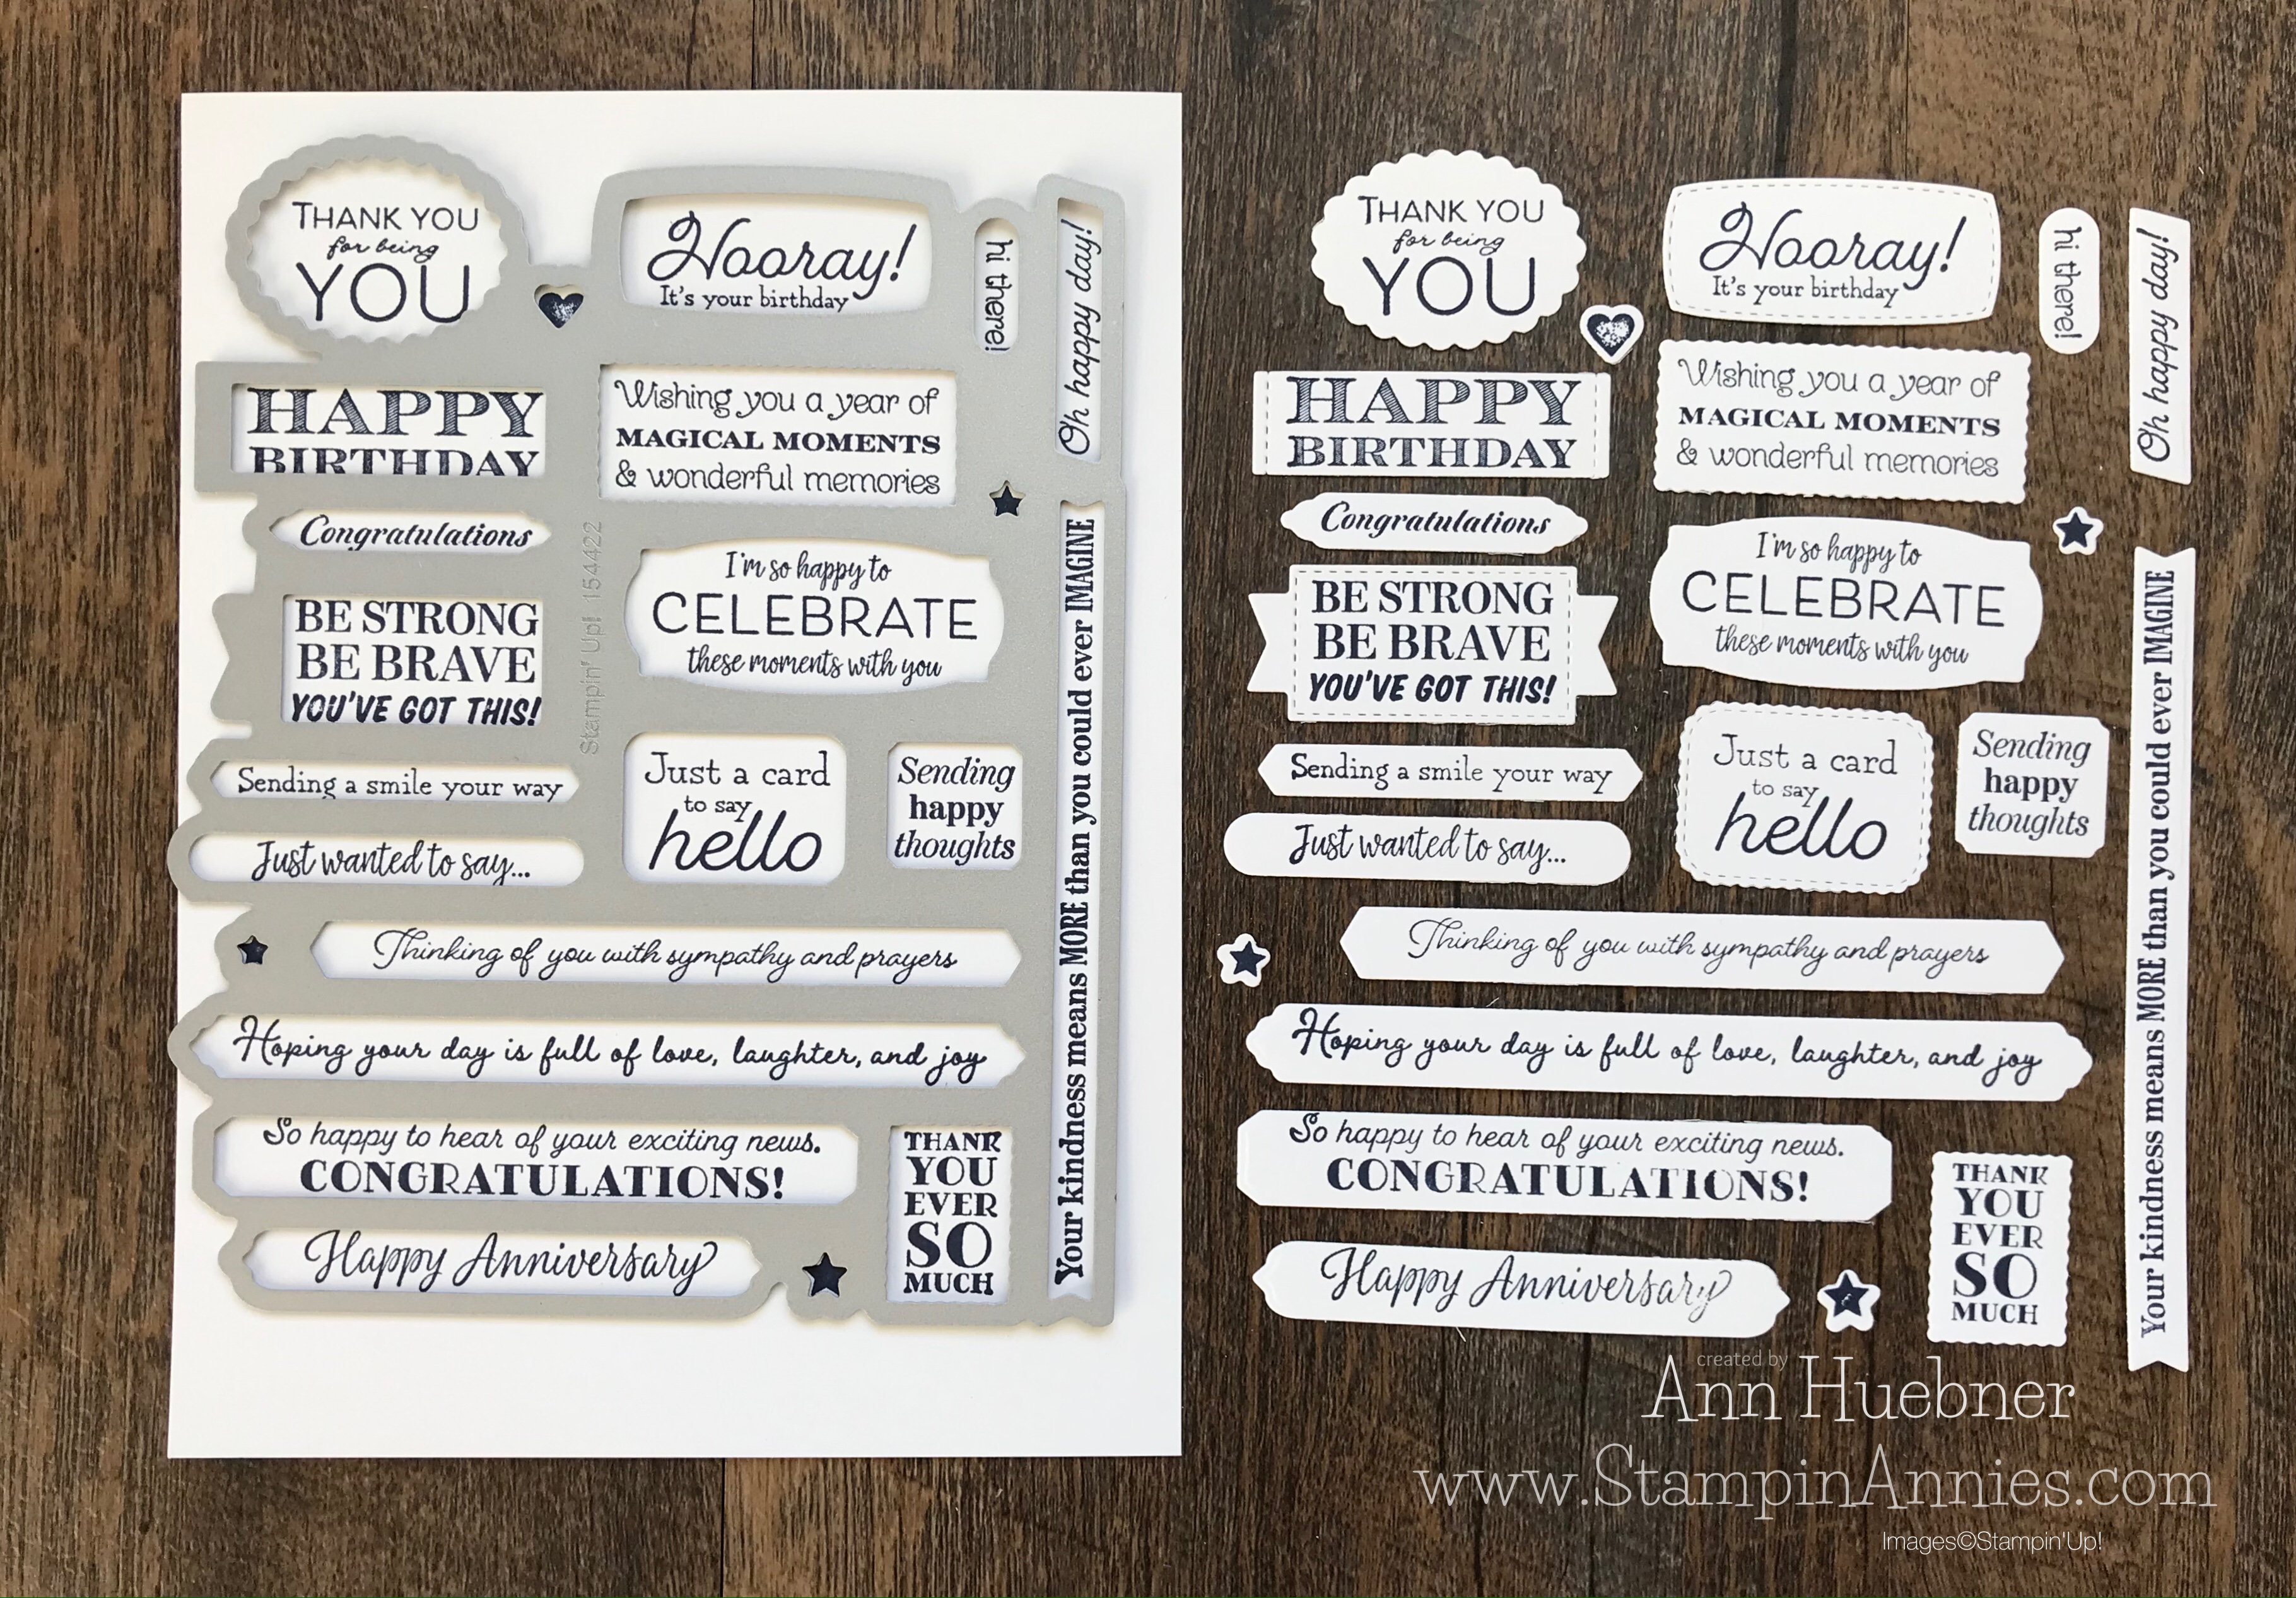 THANK YOU
for being
YOU
Hooray!
It's your birthday
hi there!
Oh happy day!
HAPPY
BIRTHDAY
Wishing you a year of
MAGICAL MOMENTS
& wonderful memories
Congratulations
I'm so happy to
CELEBRATE
these moments with you
BE STRONG
BE BRAVE
YOU'VE GOT THIS!
Stampin' Up! 154422
Sending a smile your way
Just wanted to say...
Just a card
to say
hello
Sending
happy
thoughts
Your kindness means MORE than you could ever IMAGINE
Thinking of you with sympathy and prayers
Hoping your day is full of love, laughter, and joy
So happy to hear of your exciting news.
CONGRATULATIONS!
Happy Anniversary
THANK
YOU
EVER
SO
MUCH
THANK YOU
for being
YOU
Hooray!
It's your birthday
hi there!
Oh happy day!
HAPPY
BIRTHDAY
Wishing you a year of
MAGICAL MOMENTS
& wonderful memories
Congratulations
I'm so happy to
CELEBRATE
these moments with you
BE STRONG
BE BRAVE
YOU'VE GOT THIS!
Sending a smile your way
Just wanted to say...
Just a card
to say
hello
Sending
happy
thoughts
Your kindness means MORE than you could ever IMAGINE
Thinking of you with sympathy and prayers
Hoping your day is full of love, laughter, and joy
So happy to hear of your exciting news.
CONGRATULATIONS!
Happy Anniversary
THANK
YOU
EVER
SO
MUCH
created by
Ann Huebner
www.StampinAnnies.com
Images©Stampin'Up!